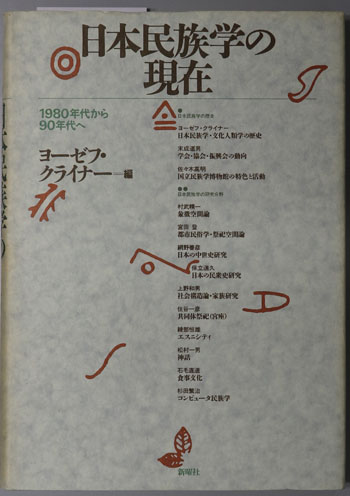 日本民族学の
現在
1980年代から
90年代へ
ヨーゼフ・
クライナー=編
●
日本民族学の歴史
ヨーゼフ・クライナー
日本民族学・文化人類学の歴史
末成道男
学会・協会・振興会の動向
佐々木高明
国立民族学博物館の特色と活動
●●
日本民族学の研究分野
村武精一
象徴空間論
宮田登
都市民俗学・祭祀空間論
網野善彦
日本の中世史研究
保立道久
日本の民衆史研究
上野和男
社会構造論・家族研究
住谷一彦
共同体祭祀(宮座)
綾部恒雄
エスニシティ
松村一男
神話
石毛直道
食事文化
杉田繁治
コンピュータ民族学
新曜社